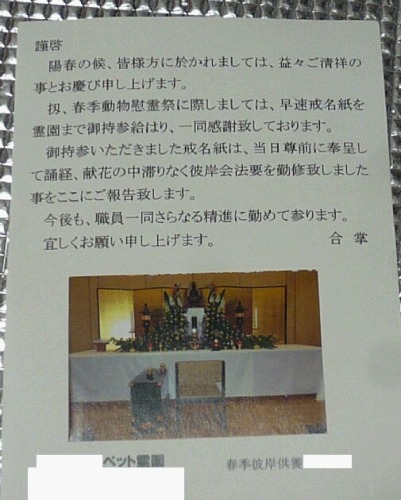 謹啓
陽春の候、皆様方に於かれましては、益々ご清祥の
事とお慶び申し上げます。
扨、春季動物慰霊祭に際しましては、早速戒名紙を
霊園まで御持参給はり、一同感謝致しております。
御持参いただきました戒名紙は、当日尊前に奉呈し
て誦経、献花の中滞りなく彼岸会法要を勤修致しました
事をここにご報告致します。
今後も、職員一同さらなる精進に勤めて参ります。
宜しくお願い申し上げます。 合掌
ペット霊園 春季彼岸供養